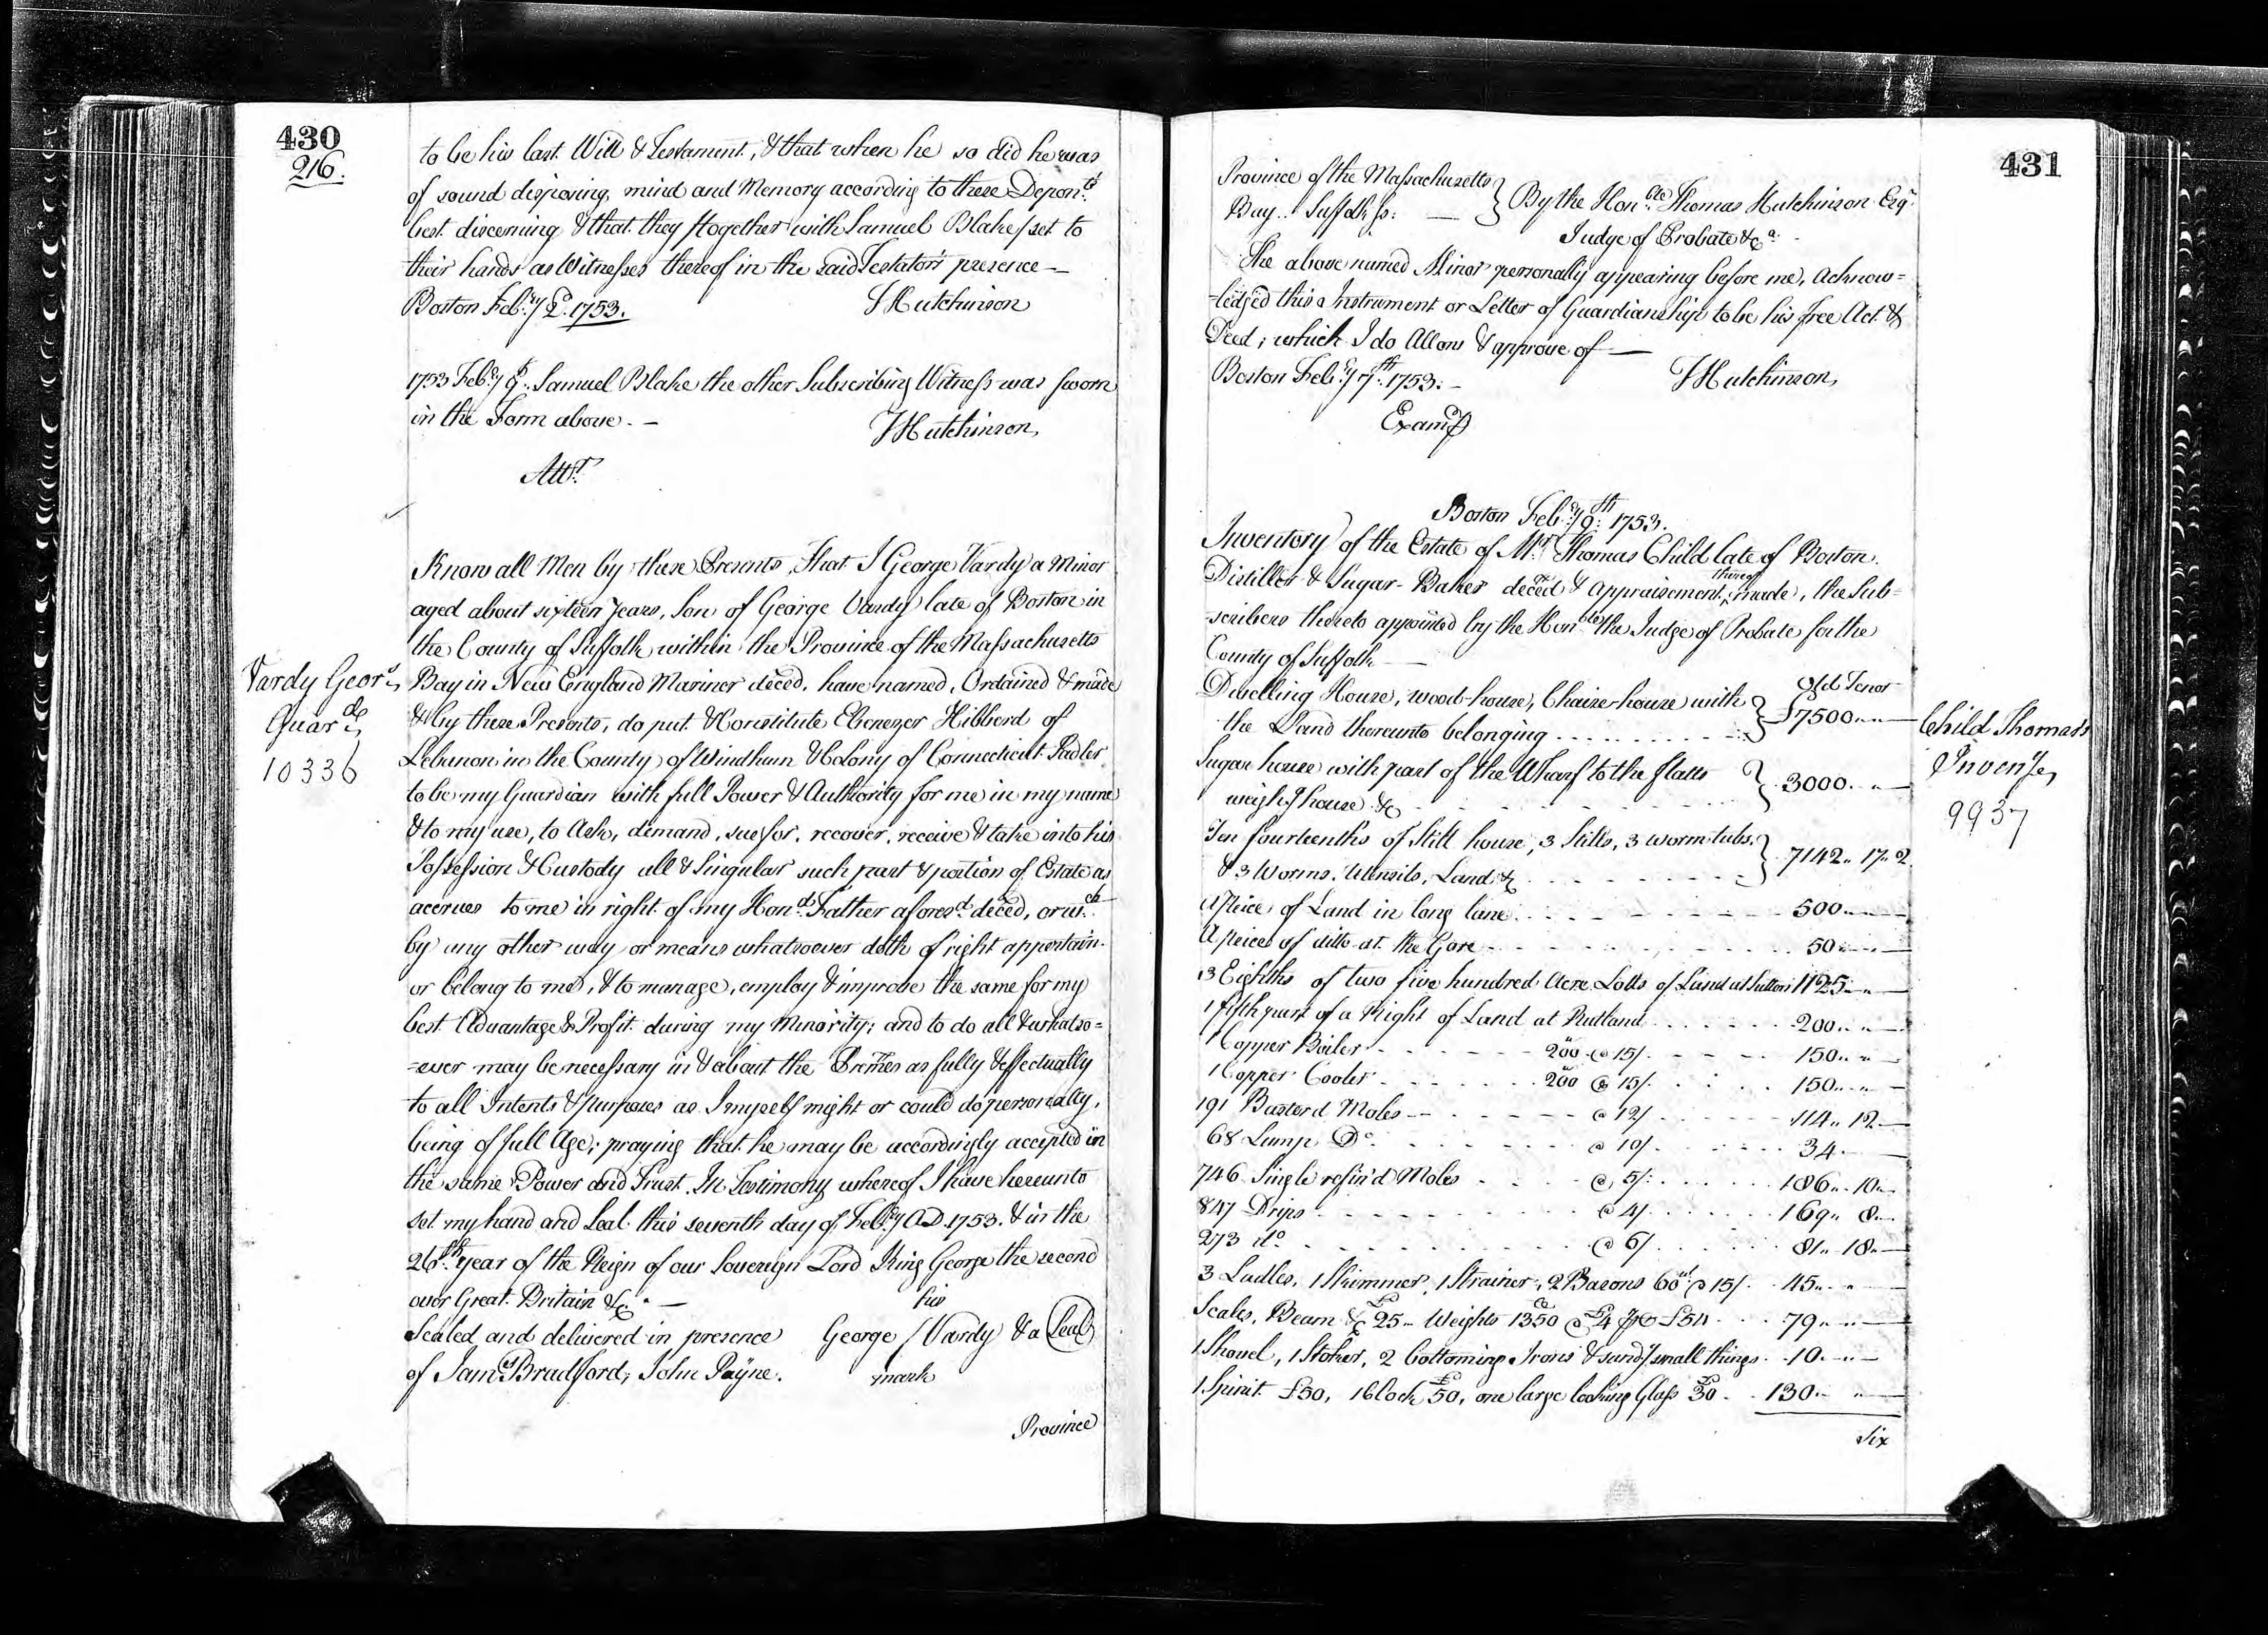 430
216.
to be his last Will & Testament, & that when he so did he was
of sound disposing mind and Memory according to these Depon.ts
best discerning & that they /together with Samuel Blake/ set to
their hands as Witnesses thereof in the said Testator's presence —
Boston Feb.ry 2.d 1753. THutchinson
1753 Feb.ry 9.th Samuel Blake the other Subscribing Witness was sworn
in the Form above. — THutchinson,
Att.r
Know all Men by these Presents, That I George Vardy a Minor
aged about sixteen years, Son of George Vardy late of Boston in
the County of Suffolk within the Province of the Massachusetts
Bay in New England Mariner deced. have named, Ordained & made
& by these Presents, do put & Constitute Ebenezer Hibberd of
Lebanon in the County of Windham & Colony of Connecticut Sadler
to be my Guardian with full Power & Authority for me in my name
& to my use, to Ask, demand, sue for, recover, receive & take into his
Possession & Custody all & Singular such part & portion of Estate as
accrues to me in right of my Hon.d Father afores.d deced, or w.ch
by any other way or means whatsoever doth of right appertain
or belong to me, & to manage, employ & improve the same for my
best Advantage & Profit during my Minority; and to do all & whatso=
=ever may be necessary in & about the Premes as fully & effectually
to all Intents & purposes as I myself might or could do personally,
being of full Age; praying that he may be accordingly accepted in
the same Power and Trust. In Testimony whereof I have hereunto
set my hand and Seal this seventh day of Feb.ry A.D. 1753. & in the
26.th year of the Reign of our Sovereign Lord King George the second
over Great Britain &c. — his
Sealed and delivered in presence George / Vardy & a Seal
of Sam.l Bradford, John Payne. mark
Province
Vardy Geor.s
Guar.dp
10336
431
Province of the Massachusetts
Bay.. Suffolk ss: — } By the Hon.ble Thomas Hutchinson Esq.r
Judge of Probate &c.a
The above named Minor personally appearing before me, Acknow=
=ledged this Instrument or Letter of Guardianship to be his free Act &
Deed; which I do Allow & approve of —
Boston Feb.ry 7.th 1753. - THutchinson,
Exam.d
Boston Feb.ry 9.th 1753.
Inventory of the Estate of M.r Thomas Child late of Boston
Distiller & Sugar-Baker deced & appraisement thereof made, the Sub=
=scribers thereto appointed by the Hon.ble the Judge of Probate for the
County of Suffolk —
Old Tenor
Dwelling House, wood-house, Chaise-house with
the Land thereunto belonging } £7500.. " —
Sugar house with part of the Wharf to the flatts
weigh house &c } 3000. " —
Ten fourteenths of Still house, 3 Stills, 3 worm tubs.
& 3 Worms, Utensils, Land &c } 7142.. 17.. 2
A Peice of Land in long lane 500.. " —
A peice of ditto at the Gore 50.. " —
3 Eighths of two five hundred Acre Lotts of Land at Sutton 1125.. " —
1 fifth part of a Right of Land at Rutland 200.. " —
1 Copper Boiler 200 @ 15/. 150.. " —
1 Copper Cooler 200 @ 15/. 150.. " —
191 Basterd Moles @ 12/ 114.. 12 —
68 Lump D.o @ 10/. 34. —
746 Single refin'd Moles @ 5/: 186.. 10..
847 Drips @ 4/ 169.. 8..
273 d.o @ 6/. 81.. 18. —
3 Ladles, 1 Skimmer, 1 Strainer, 2 Basons 60.wt @ 15/. 45.. " —
Scales, Beam &c £25 - Weights 1350 @ £4 p C £54 79.. " —
1 Shovel, 1 Stoker, 2 bottoming Irons & sund.y small things 10. " —
1 Spinit £50, 1 Clock £50, one large looking Glass £30 130.. " —
Six
Child Thomas's
Inven.ty
9937